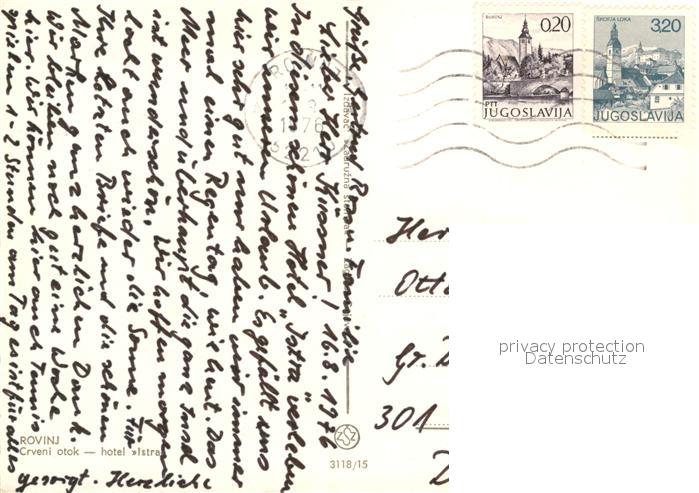 Lieber Herr Kürsner! 16.8.1976
In diesem schönen Hotel „Istra" verleben
wir unseren Urlaub. Es gefällt uns
hier sehr gut nur haben wir immer
mal einen Regentag, wie heut. Das
Meer und überhaupt die ganze Insel
ist wunderschön. Wir hoffen morgen
lacht auch wieder die Sonne. Für
Ihre letzten Briefe und die schönen
Marken ganz herzlichen Dank.
Wir bleiben noch gut eine Woche
hier. Wir können hier auch Tennis
spielen 1-2 Stunden am Tag es ist für alles
gesorgt. Herzliche
Grüße, Familie
ROVINJ
Crveni otok — hotel »Istra
3118/15
ROVINJ
1976
BOHINJ
0,20
PTT
JUGOSLAVIJA
ŠKOFJA LOKA
3,20
JUGOSLAVIJA
Her
Otto
Gr.
301
privacy protection
Datenschutz